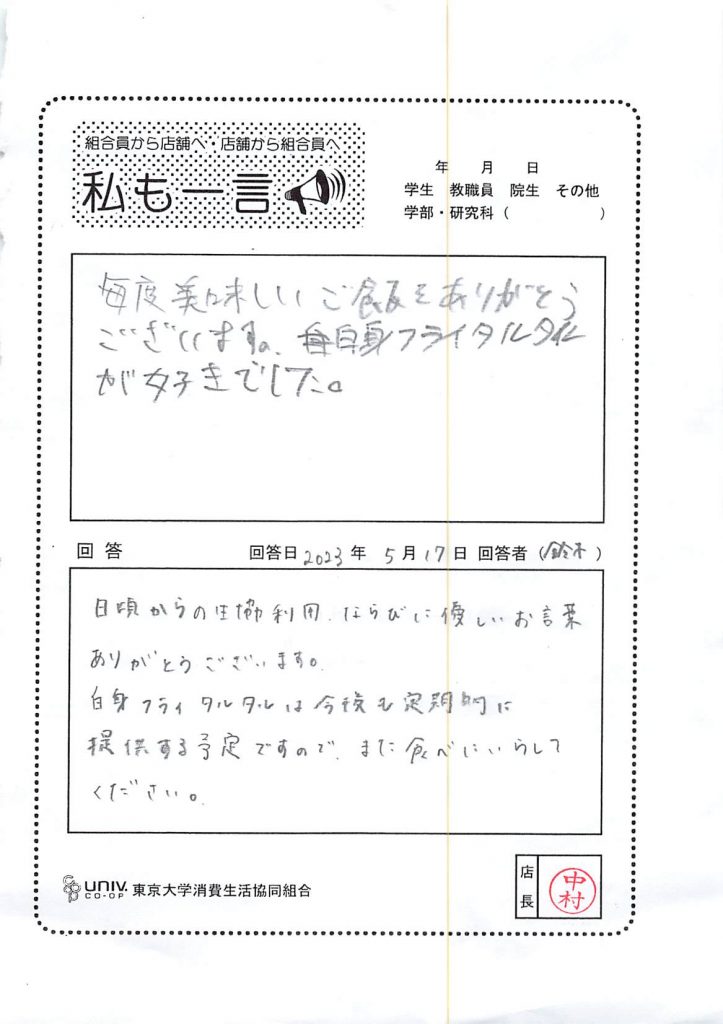 組合員から店舗へ・店舗から組合員へ
私も一言
年 月 日
学生 教職員 院生 その他
学部・研究科( )
毎度美味しいご飯をありがとう
ございますね。白身フライタルタル
が好きでした。
回答 回答日 2023年 5月17日 回答者(鈴木)
日頃からの生協利用、ならびに優しいお言葉
ありがとうございます。
白身フライタルタルは今後も定期的に
提供する予定ですので、また食べにいらして
ください。
UNIV. CO-OP 東京大学消費生活協同組合
店長
中村